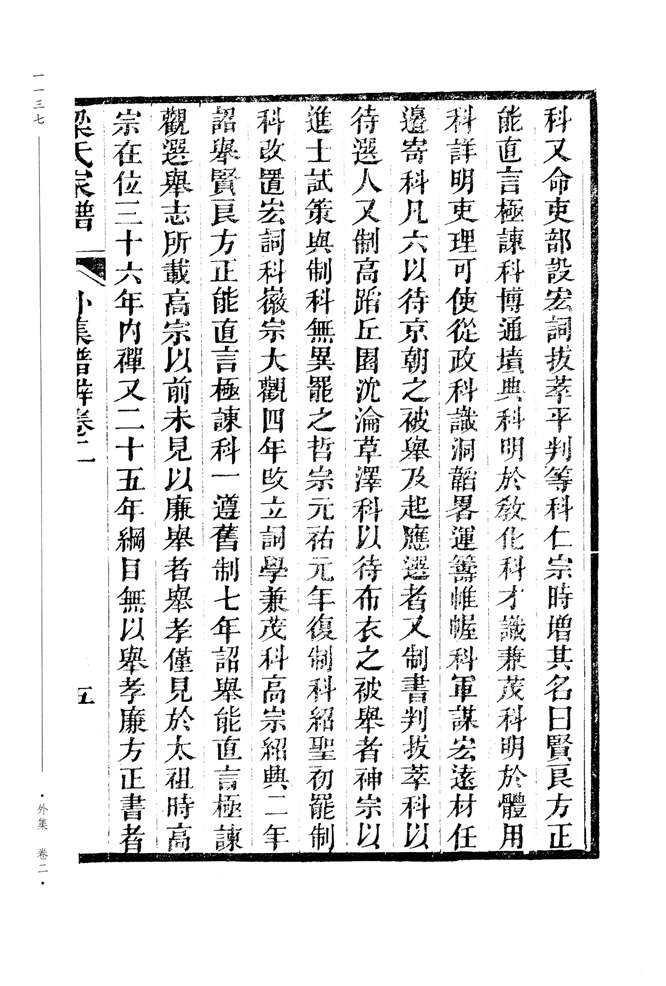 科又命吏部設宏詞拔萃平判等科仁宗時增其名曰賢良方正
能直言極諫科博通墳典科明於敎化科才識兼茂科明於體用
科詳明吏理可使從政科識洞韜畧運籌帷幄科軍謀宏遠材任
邊寄科凡六以待京朝之被舉及起應選者又制書判拔萃科以
待選人又制高蹈丘園沈淪草澤科以待布衣之被舉者神宗以
進士試策與制科無異罷之哲宗元祐元年復制科紹聖初罷制
科改置宏詞科徽宗大觀四年改立詞學兼茂科高宗紹興二年
詔舉賢良方正能直言極諫科一遵舊制七年詔舉能直言極諫
觀選舉志所載高宗以前未見以廉舉者舉孝僅見於太祖時高
宗在位三十六年內禪又二十五年綱目無以舉孝廉方正書者
梁氏家譜 外集譜辨卷二 五
一一三七
·外集 卷二·